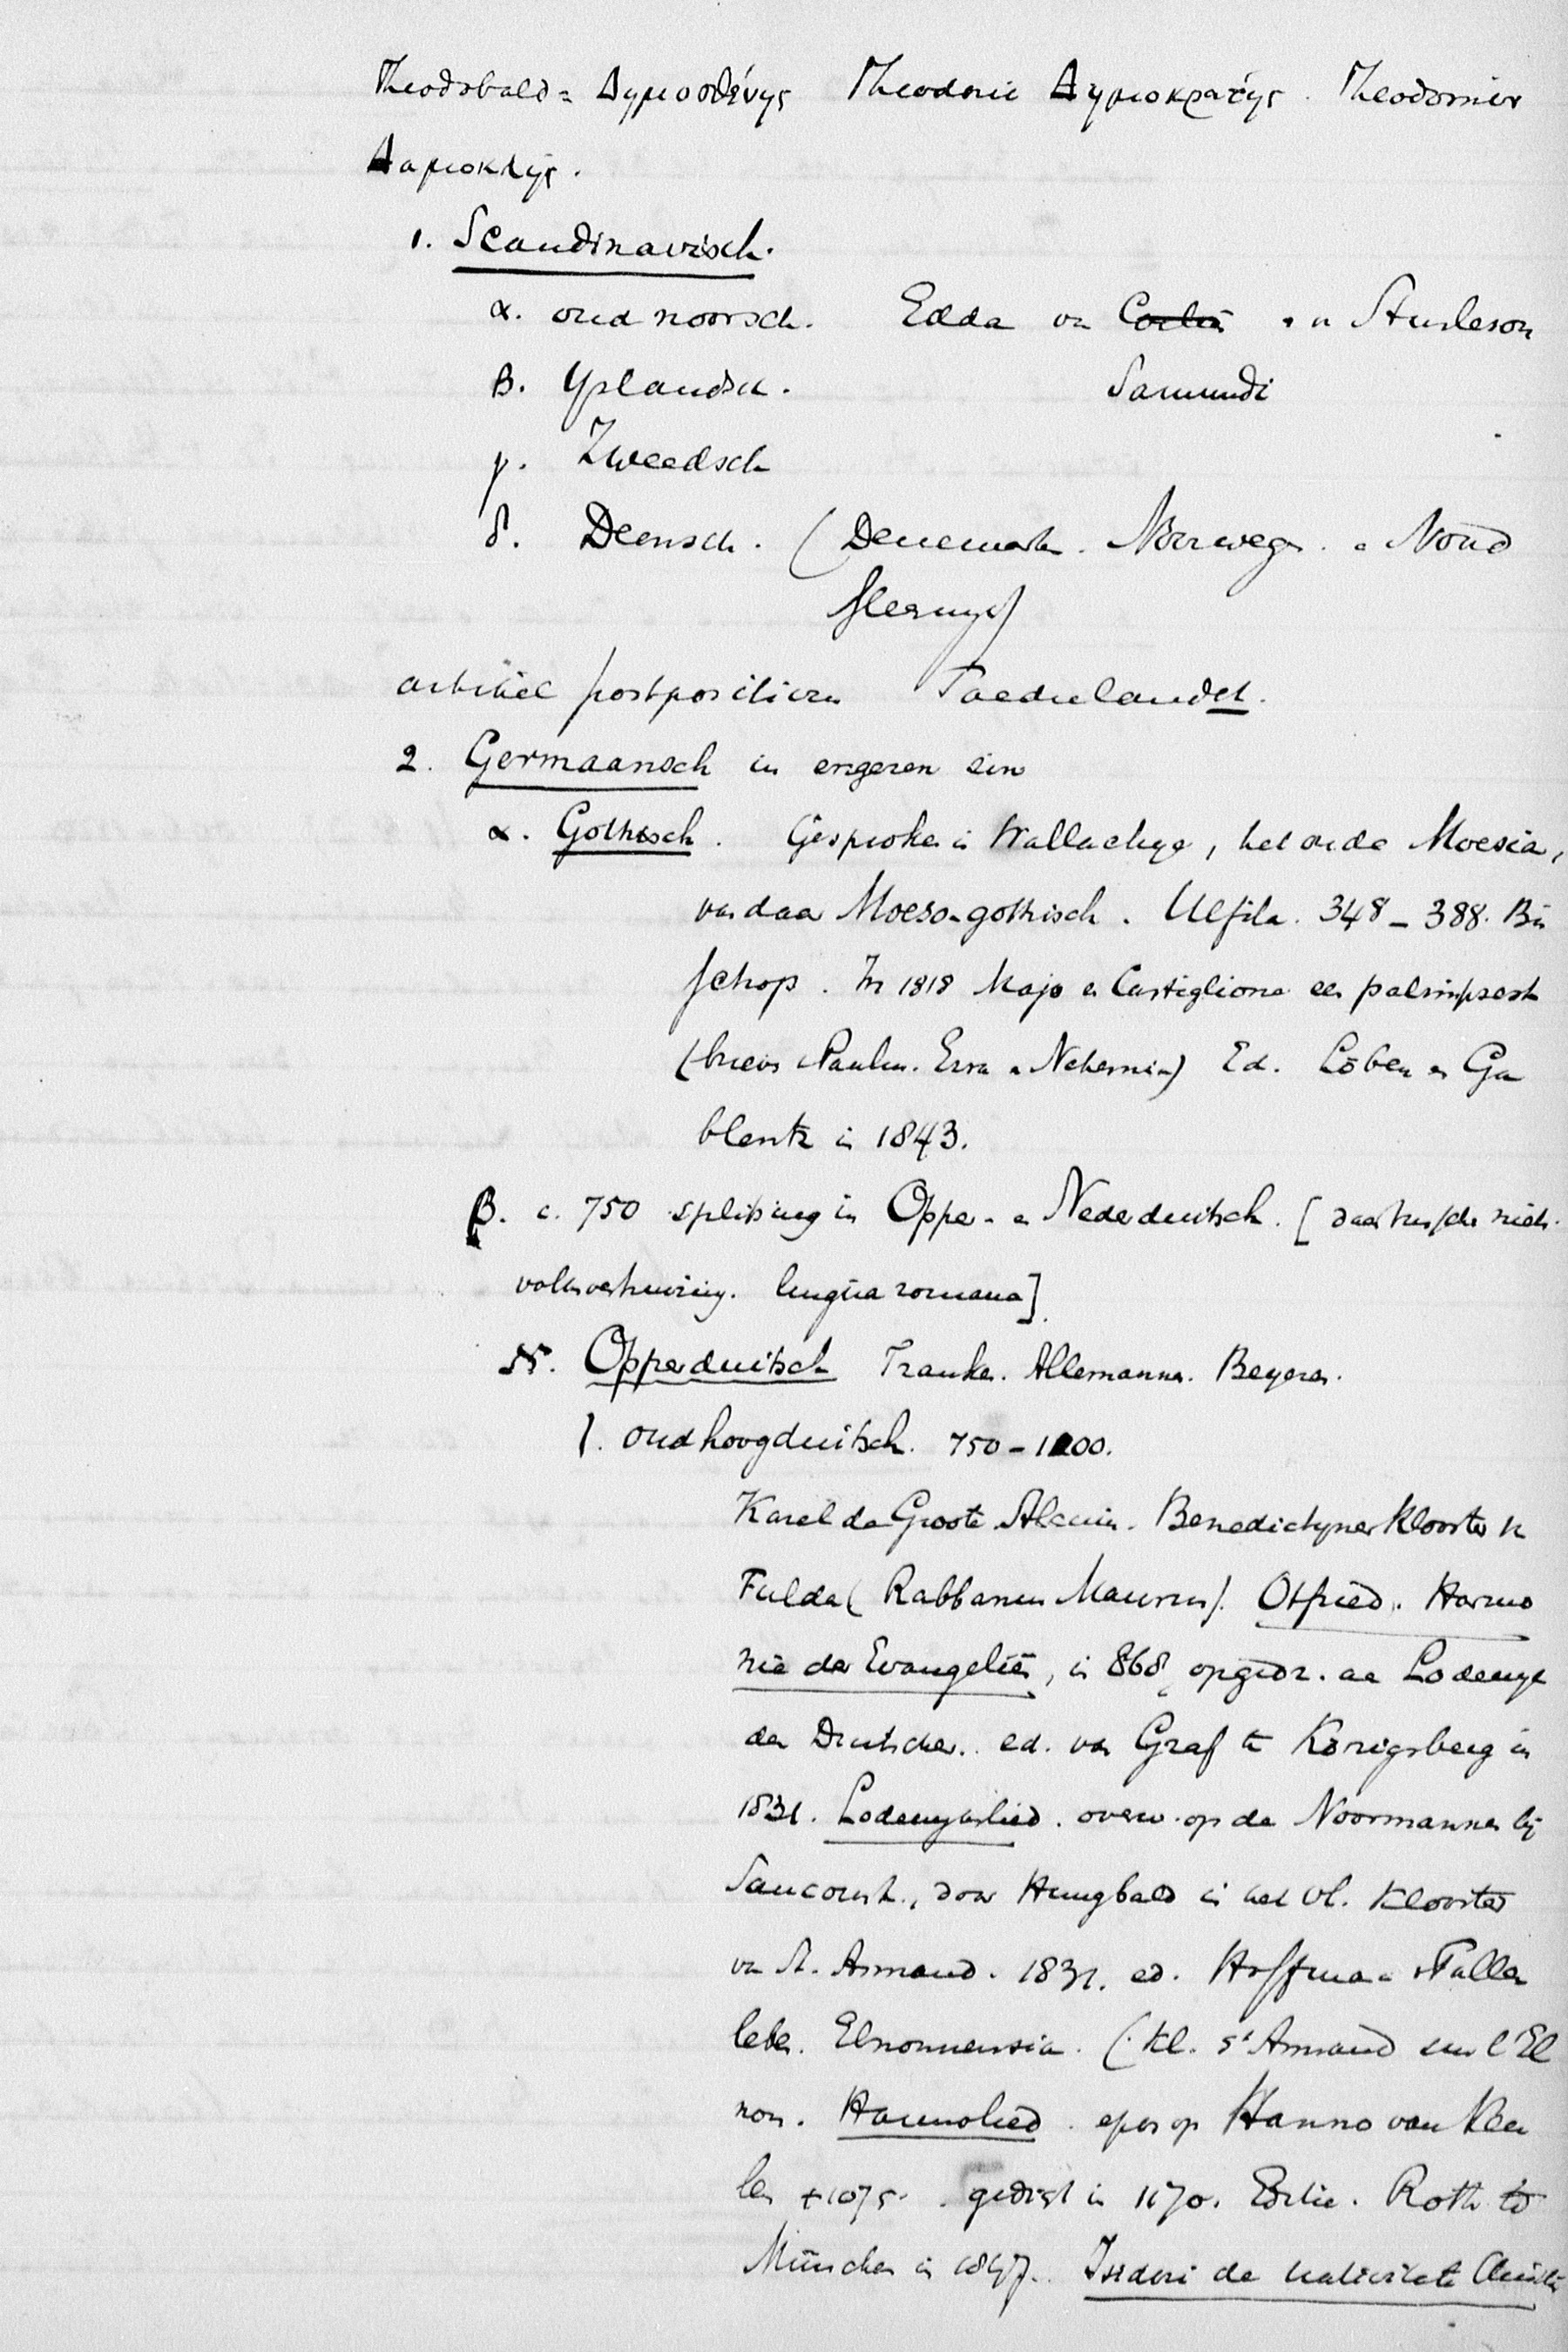 Theodobald = Δημοσθένης Theodoric Δημοκράτης. Theodomir
Δαμοκλῆς.
1. Scandinavisch.
α. oud noorsch. Edda vn Sturleson
β. Yslandsch. Samundi
γ. Zweedsch
δ. Deensch. (Denemark. Noorwegn. Noord
Sleswyk)
artikel postpositivum landet.
2. Germaansch in engeren zin
α. Gothisch. Gesproken in Wallachye, het oude Moesia,
van daar Moeso-gothisch. Ulfila. 348-388. Bis
schop. In 1818 Majo en Castiglione een palimpsest
(brieven Paulus. Esra en Nehemia) Ed. Löben en Ga
blentz in 1843.
β. c. 750 splitsing in Opper- en Nederduitsch. [daartusschen
volksverhuizing. lingua romana].
א. Opperduitsch Franken. Allemannen. Beyeren.
1. oudhoogduitsch. 750-1100.
Karel de Groote. Alcuin. Benedictyner klooster
Fulda (Rabbanus Maurus). Otfried. Harmo
nie der Evangeliën, in 868 opgedr. aan Lodewyk
den Duitscher. ed. van Graf te Königsberg in
1831. Lodewykslied. overw. op de Noormannen bij
Saucourt., door Hungbald in het Vl. klooster
vn St. Armand. 1837. ed. Hoffman v Faller
leben. Elnonensia. (kl. St Amand sur l'El
non. Hannolied. epos op Hanno van Keu
len +1075. gedicht in 1170. Editie. Roth te
München in 1847. Isidori de nativitate Christi